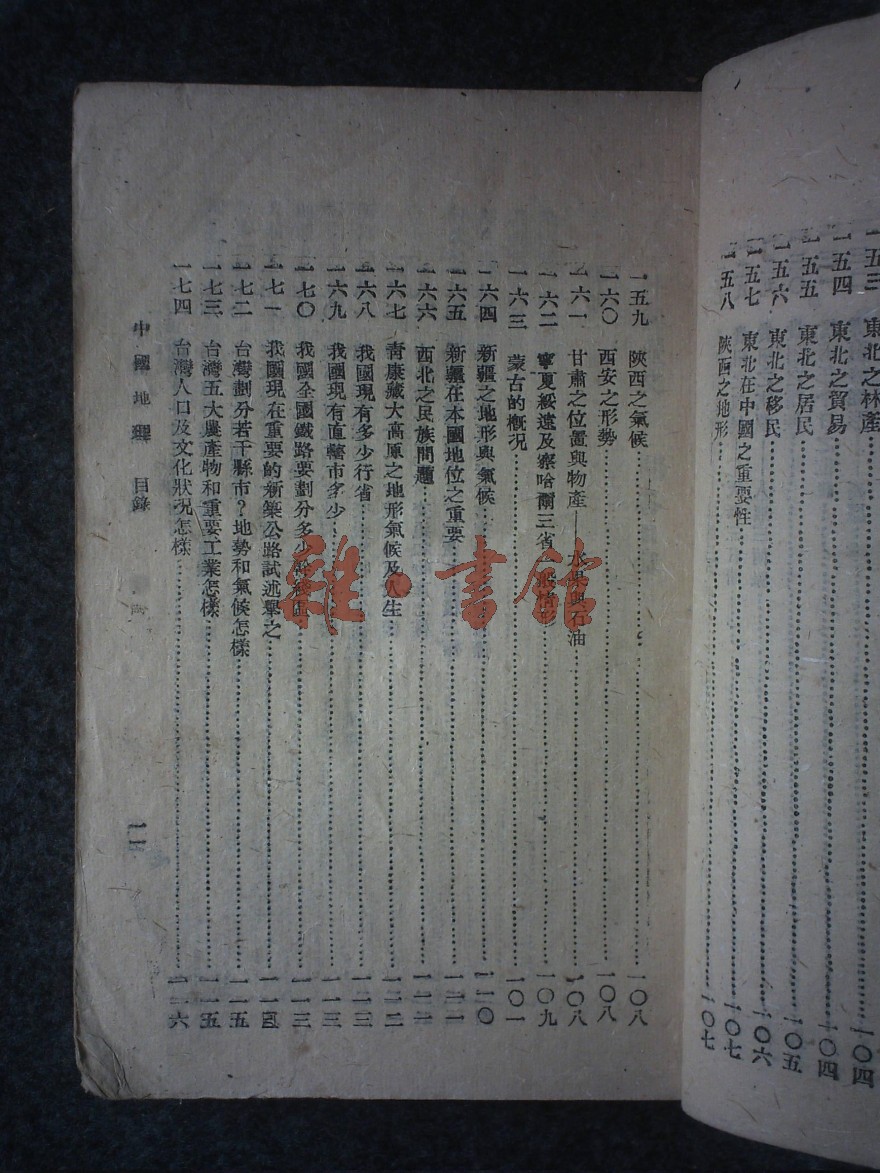 一五三 東北之林產……一〇四
一五四 東北之貿易……一〇四
一五五 東北之居民……一〇五
一五六 東北之移民……一〇六
一五七 東北在中國之重要性……一〇七
一五八 陝西之地形……一〇七
一五九 陝西之氣候……一〇八
一六〇 西安之形勢……一〇八
一六一 甘肅之位置與物產——水果與石油……一〇八
一六二 寧夏綏遠及察哈爾三省一般情……一〇九
一六三 蒙古的概況……一〇一
一六四 新疆之地形與氣候……一一〇
一六五 新疆在本國地位之重要……一一一
一六六 西北之民族問題……
一六七 青康藏大高原之地形氣候及人生……一二二
一六八 我國現有多少行省……一一三
一六九 我國現有直轄市多少……一一三
一七〇 我國全國鐵路要劃分多少幹線區……一一三
一七一 我國現在重要的新築公路試述舉之……
一七二 台灣劃分若干縣市？地勢和氣候怎樣……一一五
一七三 台灣五大農產物和重要工業怎樣……一一五
一七四 台灣人口及文化狀況怎樣……一一六
中國地理 目錄
一一
雜·書館